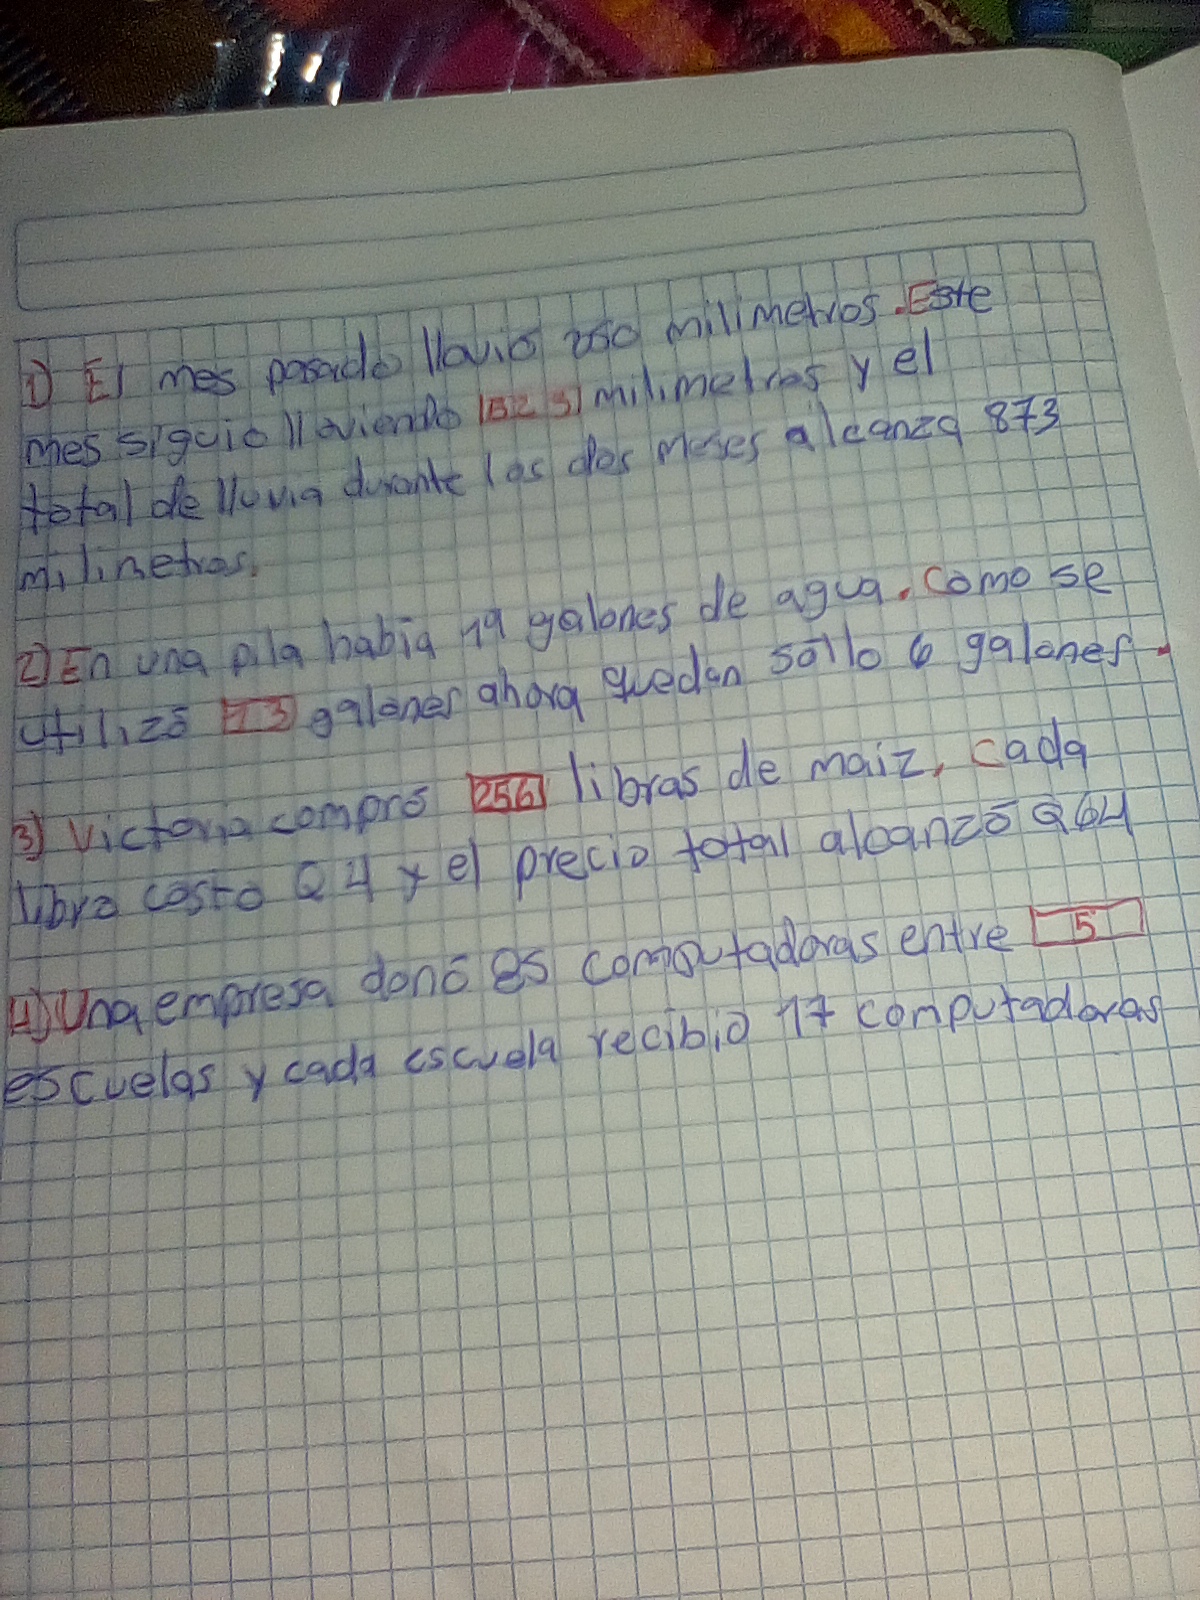 1) El mes pasado llovio 250 milimetros. Este
mes siguio lloviendo milimetros y el
total de lluvia durante los dos meses alcanza 873
milimetros.
2) En una pila habia 19 galones de agua. Como se
utilizó 13 galones ahora quedan sólo 6 galones.
3) Victoria compró 256 libras de maiz, cada
libra costo Q4 y el precio total alcanzó Q64
4) Una empresa donó 85 computadoras entre 5
escuelas y cada escuela recibio 17 computadoras